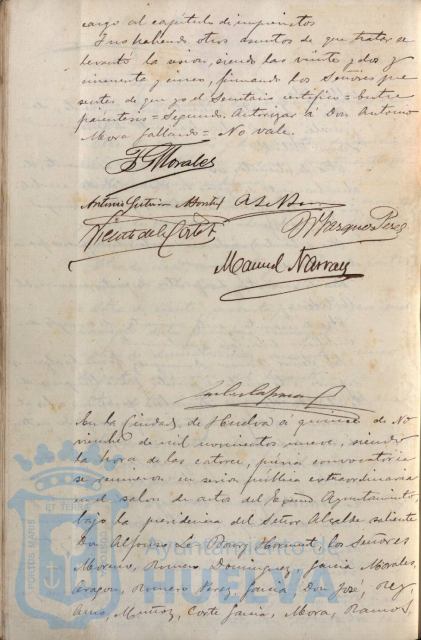 cargo al capítulo de imprevistos
I no habiendo otros asuntos de que tratar se
levantó la sesion, siendo las veinte y dos y
cincuenta y cinco, firmando los Señores pre
sentes de que yo el Secretario certifico = Entre
parentesis = Segundo. Autorizar á Don Antonio
Mora fallando = No vale.
Morales
Antonio
Vicente de la Corte
Vazquez Perez
Manuel Narvaez
En la Ciudad de Huelva á quince de No
viembre de mil novecientos nueve, siendo
la hora de las catorce, prévia convocatoria
se reunieron en sesion pública extraordinaria
en el salon de actos del Excmo Ayuntamiento,
bajo la presidencia del Señor Alcalde saliente
Don Alfonso Le Bourg los Señores
Moreno, Romero Dominguez, García Morales,
Aragon, Romero Perez, García, Don José, Rey,
Muñoz, Corte García, Mora, Ramos,
Ayuntamiento de
HUELVA
PORTUS MARIS
ET TERRE
CUSTODIA